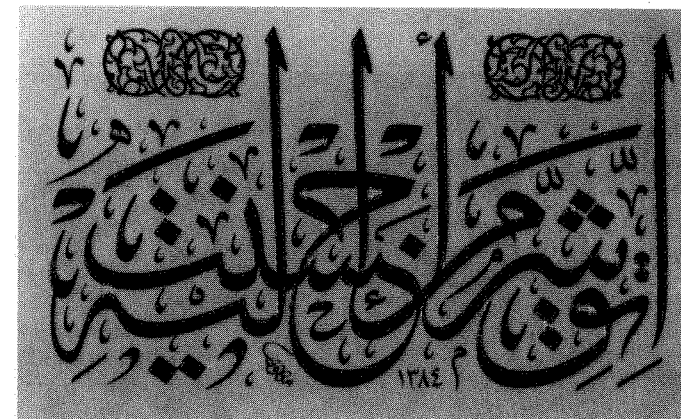 اتق شر من أحسنت إليه
١٣٨٤